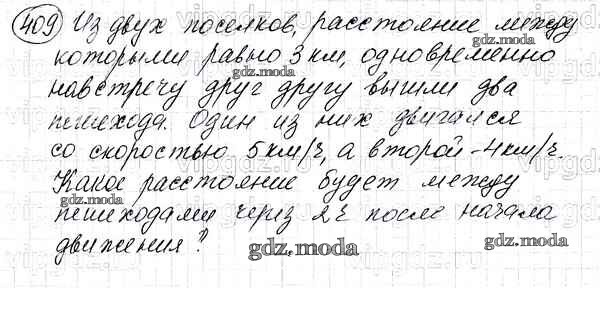 409 Из двух поселков, расстояние между
которыми равно 3 км, одновременно
gdz.moda gdz.moda
навстречу друг другу вышли два
пешехода. Один из них двигался
со скоростью 5 км/ч, а второй - 4 км/ч.
Какое расстояние будет между
gdz.moda gdz.moda
пешеходами через 2 ч после начала
движения?
gdz.moda gdz.moda